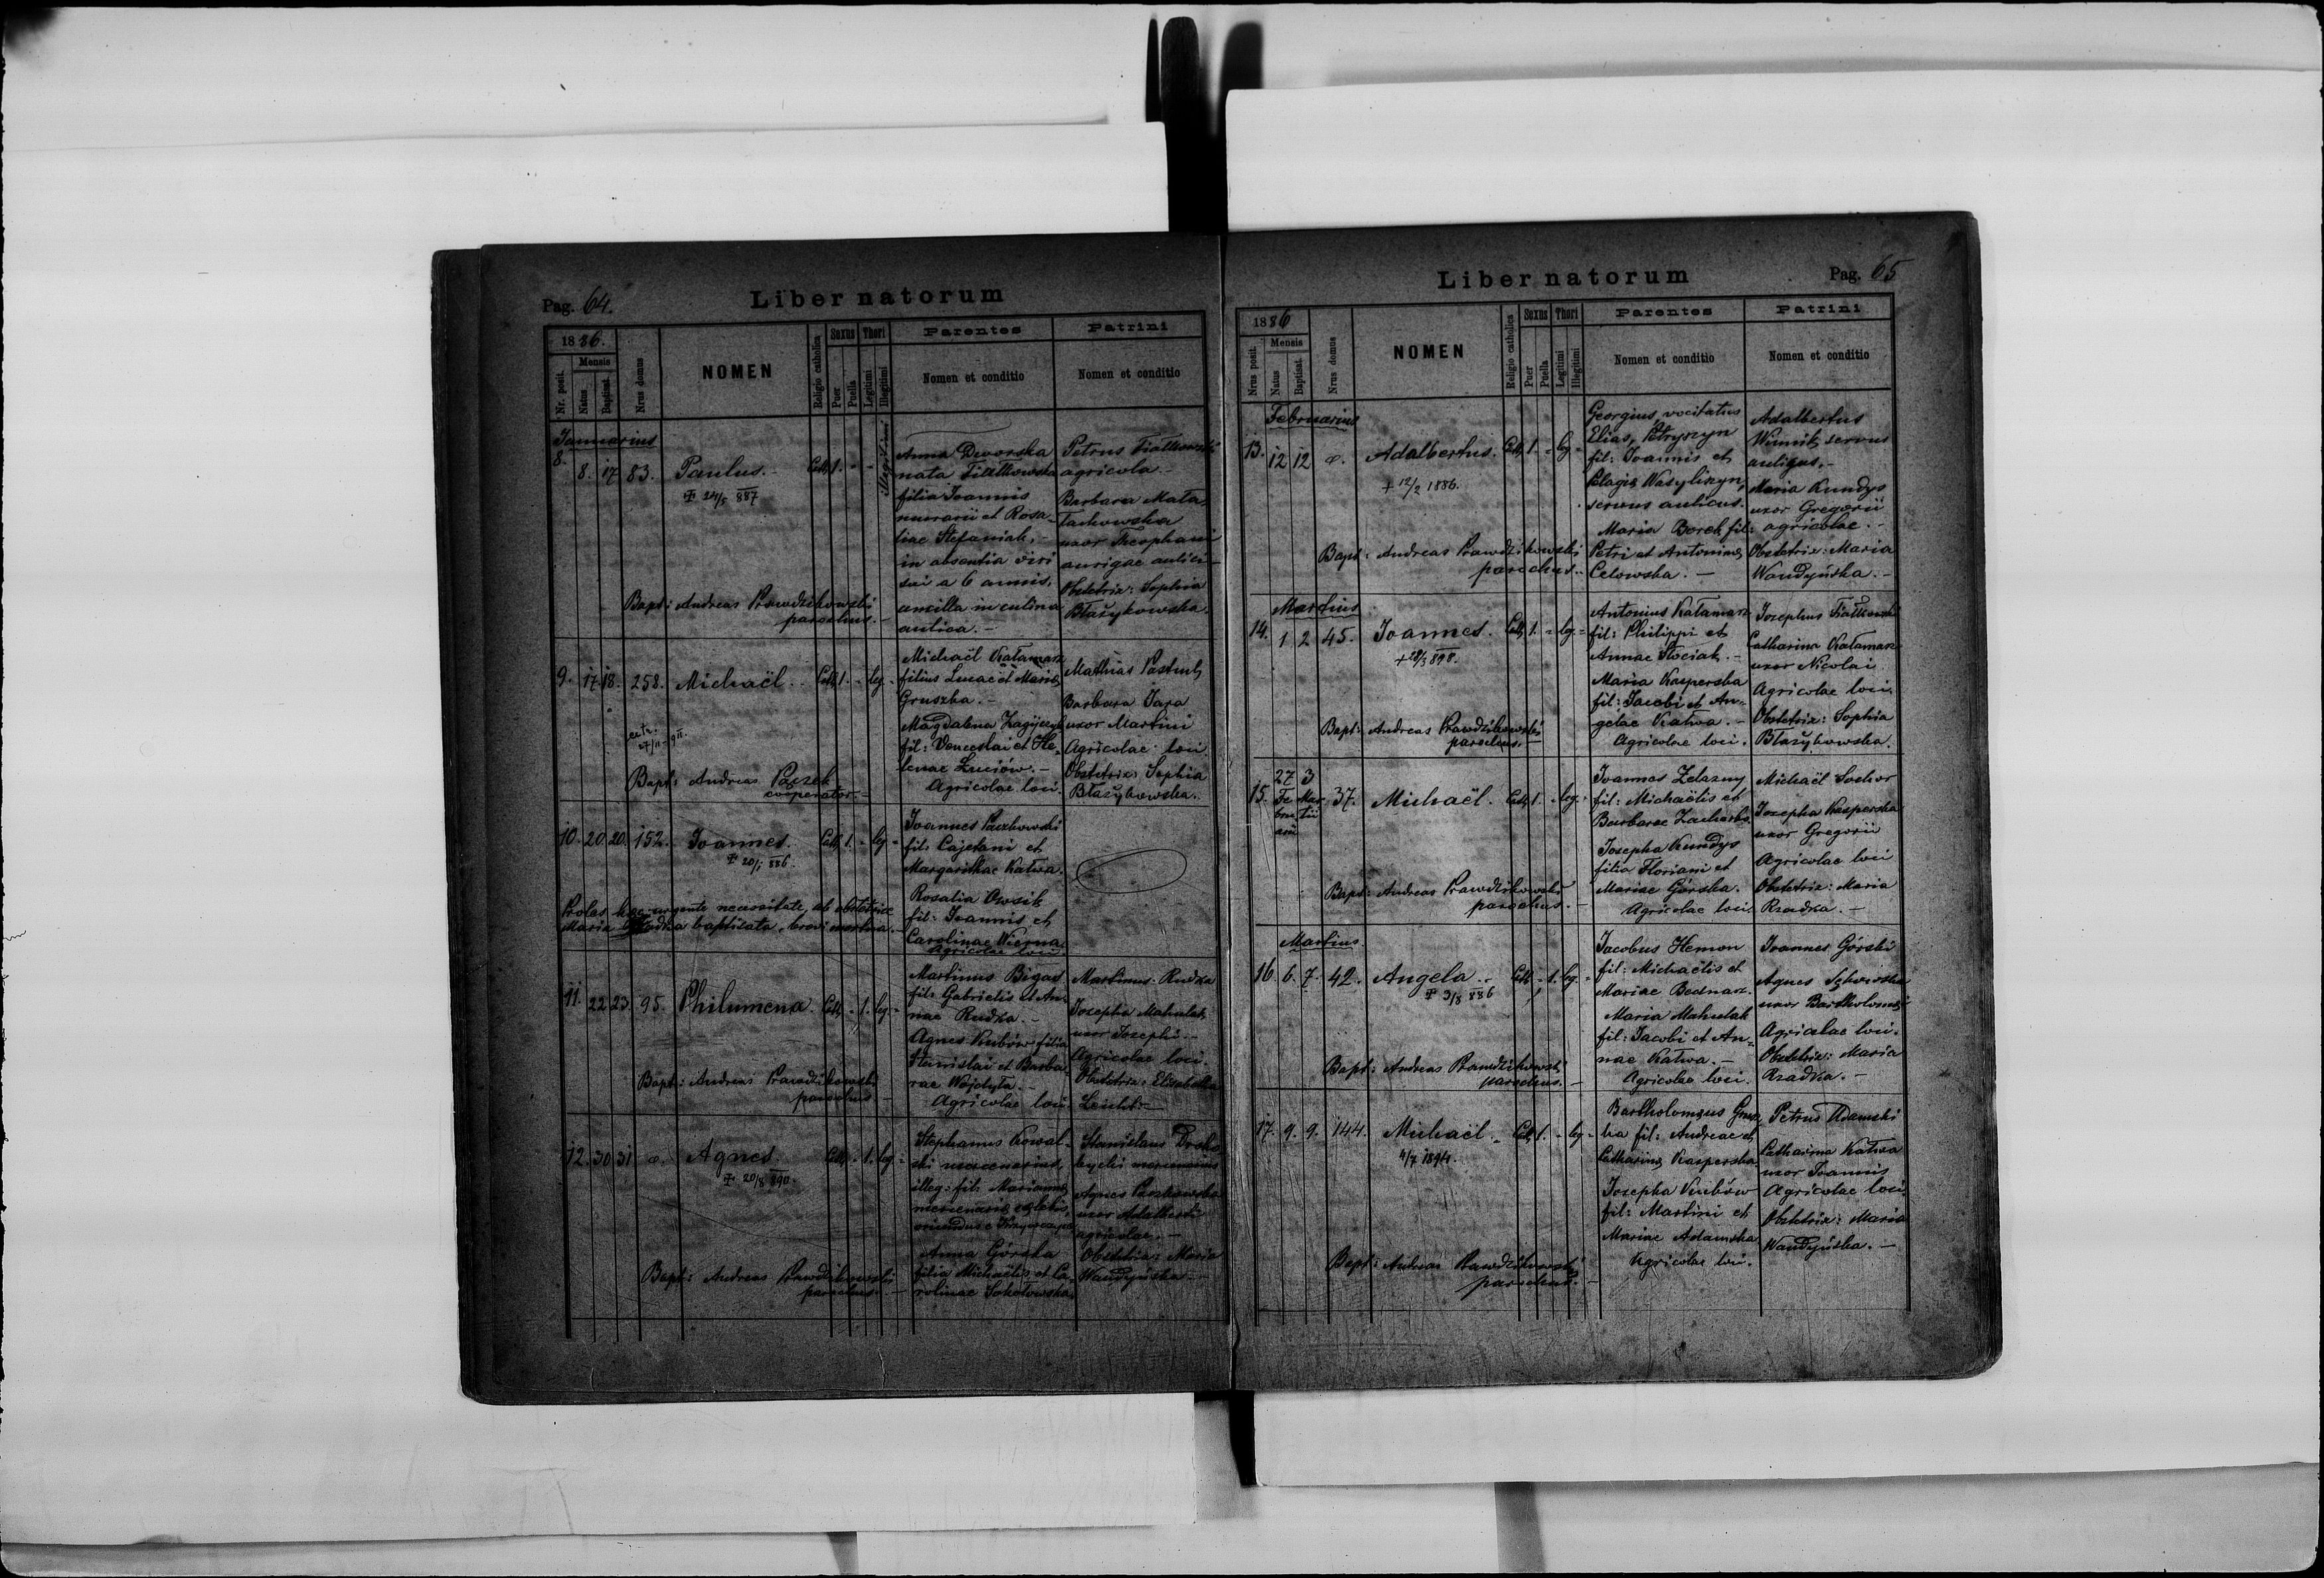 Pag. 64.
Liber natorum
1886.
Nr. posit.
Mensis
Natus
Baptisat.
Nrus domus
NOMEN
Religio catholica
Sexus
Puer
Puella
Thori
Legitimi
Illegitimi
Parentes
Nomen et conditio
Patrini
Nomen et conditio
Januarius
8. 8. 17 83. Paulus.- Cath 1. - - Illegitimi
Ŧ 24/5 887
Anna Dworska
nata Fiałkowska
filia Joannis
murarii et Rosa-
liae Stefaniak,-
in absentia viri
sui a 6 annis,
ancilla in culina
aulica.-
Petrus Fiałkowski
agricola.-
Barbara
uxor Theophani
aurigae aulici
Obstetrix: Sophia
Błażykowska.
Bapt: Andreas Prawdzikowski
parochus.-
9. 17 18. 258. Michaël. Cath 1. - leg. -
Michaël Kałamarz
filius Lucae et Mariae
Gruszka.-
Magdalena
fil: Venceslai et He-
lenae Luciów.-
Agricolae loci.
Mathias Pastuch
Barbara Jara
uxor Martini
Agricolae loci
Obstetrix: Sophia
Błażykowska.
Bapt: Andreas Pączek
cooperator.-
10. 20. 20. 152. Joannes. Cath 1. - leg -
Ŧ 20/1 886.
Joannes Paszkowski
fil: Cajetani et
Margarithae Kałwa.
Rosalia Owsik
fil: Joannis et
Carolinae Wierna
Agricolae loci
Proles haec urgente necessitate ab obstetrice
Maria Rzadka baptizata, brevi mortua.-
11. 22 23. 95. Philumena. Cath - 1. leg. -
Martinus Bigas
fil: Gabrielis et An-
nae Rudka.-
Agnes Kubów filia
Stanislai et Barba-
rae Wojtyła.-
Agricolae loci.
Martinus Rudka
Josepha Mahulak
uxor Josephi.-
Agricolae loci.
Obstetrix: Elisabetha
Leicht.-
Bapt: Andreas Prawdzikowski
parochus.-
12. 30 31 Agnes. Cath - 1. leg -
Ŧ 20/8 890.
Stephanus Kowal-
ski mercenarius,
illeg: fil: Mariannae
Anna Górska
filia Michaëlis et Ca-
rolinae Sokołowska.
Stanislaus
mercenarius
Agnes Paszkowska
uxor Adalberti
agricolae.-
Obstetrix: Maria
Wandyńska.-
Bapt: Andreas Prawdzikowski
parochus.-
Liber natorum
Pag. 65
1886
Nrus posit.
Mensis
Natus
Baptisat.
Nrus domus
NOMEN
Religio catholica
Sexus
Puer
Puella
Thori
Legitimi
Illegitimi
Parentes
Nomen et conditio
Patrini
Nomen et conditio
Februarius
13. 12 12 Adalbertus. Cath 1. - leg -
+ 12/2 1886.
Georgius vocitatus
Elias, Petryszyn
fil: Joannis et
Pelagiae Wasyliszyn,
servus aulicus.
Maria Borek fil:
Petri et Antoninae
Celowska.-
Adalbertus
Winnik servus
aulicus.-
Maria Kundys
uxor Gregorii
agricolae.-
Obstetrix: Maria
Wandyńska.-
Bapt: Andreas Prawdzikowski
parochus.-
Martius
14. 1 2 45. Joannes. Cath 1. - leg. -
+ 28/3 898.
Antonius Kałamarz
fil: Philippi et
Annae Stociak.-
Maria Kasperska
fil: Jacobi et An-
gelae Kałwa.-
Agricolae loci.
Josephus Fiałkowski
Catharina Kałamarz
uxor Nicolai
Agricolae loci.
Obstetrix: Sophia
Błażykowska.
Bapt: Andreas Prawdzikowski
parochus.-
15. 27 Februarii 3 Martii 37. Michaël. Cath 1. - leg. -
Joannes Zelazny
fil: Michaëlis et
Barbarae
Josepha Kundys
filia Floriani et
Mariae Górska.
Agricolae loci.
Michaël Sochor
Josepha Kasperska
uxor Gregorii
Agricolae loci
Obstetrix: Maria
Rzadka.-
Bapt: Andreas Prawdzikowski
parochus.-
Martius
16. 6. 7. 42. Angela.- Cath - 1. leg. -
Ŧ 3/8 886
Jacobus Hemon
fil: Michaëlis et
Mariae Bednarz.
Maria Mahulak
fil: Jacobi et An-
nae Kałwa.-
Agricolae loci.
Joannes Górski
Agnes
uxor Bartholomaei
Agricolae loci.
Obstetrix: Maria
Rzadka.-
Bapt: Andreas Prawdzikowski
parochus.-
17. 9. 9. 144. Michaël. Cath 1. - leg -
4/7 1894.
Bartholomaeus Grusz-
ka fil: Andreae et
Catharinae Kasperska.
Josepha Kubów
fil: Martini et
Mariae Adamska
Agricolae loci.
Petrus Adamski
Catharina Kałwa
uxor Joannis
Agricolae loci
Obstetrix: Maria
Wandyńska.-
Bapt: Andreas Prawdzikowski
parochus.-